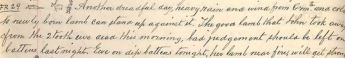 FR 29 Another dreadful day, heavy rain and wind from S.W. and cold
no newly born lamb can stand up against it. The good lamb that John took away
from the 2 tooth ewe dead this morning, bad judgement should be left on
last night. Ewe on dip battens tonight, his lamb near fire, will get them